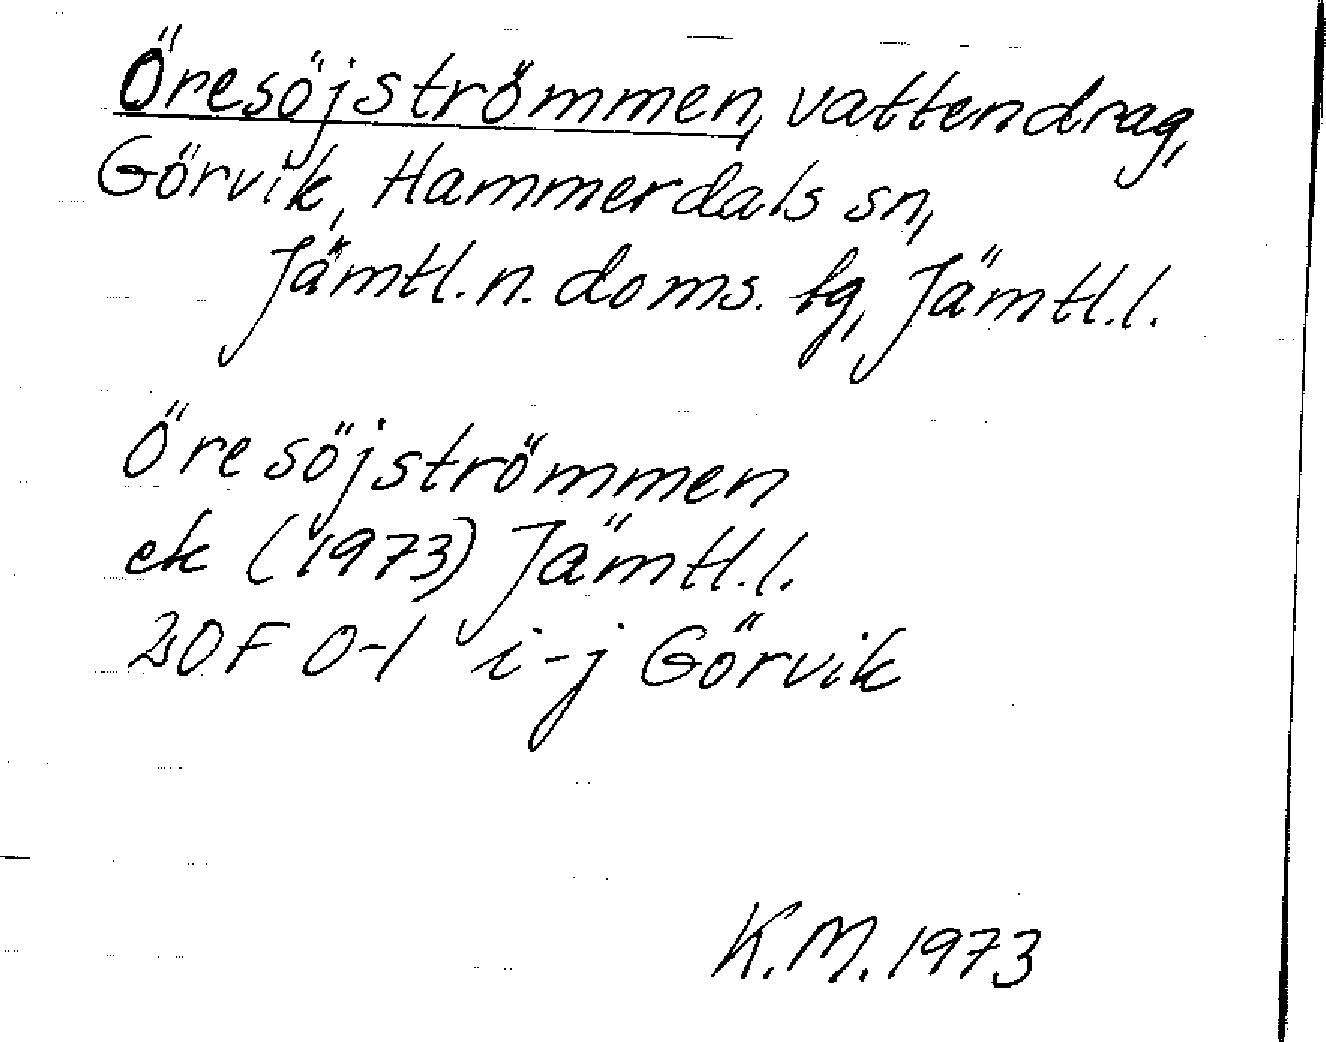 Öresöjströmmen, vattendrag,
Görvik, Hammerdals sn,
Jämtl.n. doms. tg, Jämtl.l.
Öresöjströmmen
ek (1973) Jämtl.l.
20F 0-1 i-j Görvik
K.M. 1973